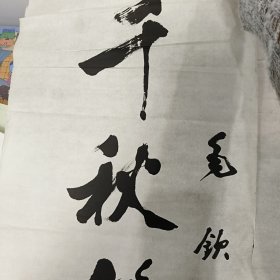 千秋
毛钦